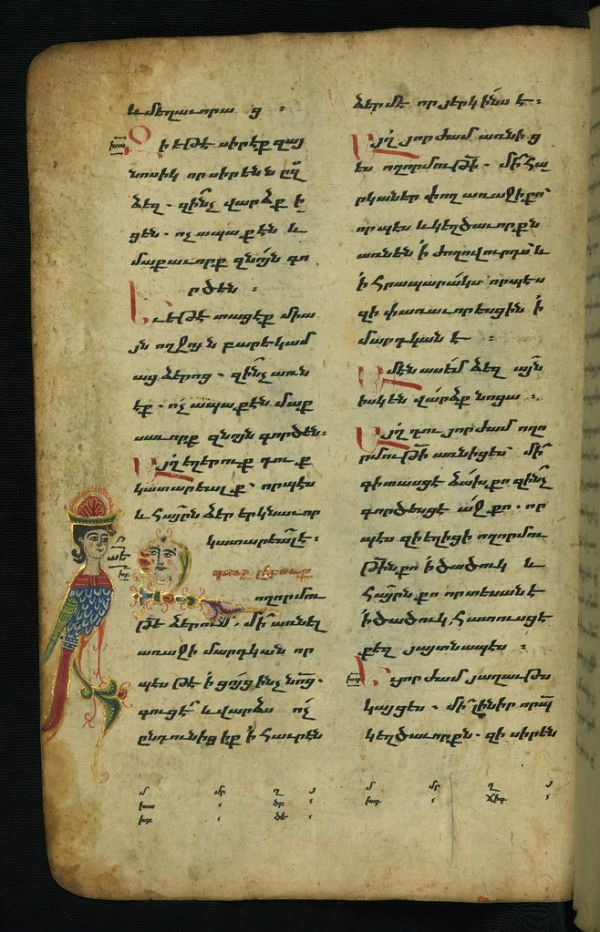 եւ մեղաւորա ց ։
Զի եթէ սիրէք զայ
նոսիկ որ սիրենն ըզ
ձեզ . զի՞նչ վարձք ի
ցեն . ոչ ապաքէն եւ
մաքսաւորք զնոյն գո
րծեն ։
Եւ եթէ տացէք միա
յն ողջոյն բարեկամ
աց ձերոց . զի՞նչ առն
էք . ոչ ապաքէն մաք
սաւորք զնոյն գործեն ։
Այլ եղերուք դուք
կատարեալք . որպէս
եւ հայրն ձեր երկնաւոր
կատարեալ է ։
Զգոյշ լերուք
ողորմու
թե ձերում . մի՛ առնել
առաջի մարդկան որ
պէս թէ ի ցոյց ինչ նոց .
գուցէ եւ վարձս ոչ
ընդունիցիք ի հաւրէն
ձերմէ որ յերկինս է ։
Այլ յորժամ առնից
ես ողորմութի . մի՛ հա
րկաներ փող առաջի քո
որպէս եւ կեղծաւորքն
առնեն ի ժողովուրդս եւ
ի հրապարակս որպէս
զի փառաւորեսցին ի
մարդկանէ ։
Ամէն ասեմ ձեզ այն
իսկ են վարձք նոցա ։
Այլ դու յորժամ ողո
րմութի առնիցես մի՛
գիտասցէ ձախ քո զինչ
գործեսցէ աջ քո . որ
պէս զի եղիցի ողորմու
թին քո ի ծածուկ . եւ
հայրն քո որ տեսանէ
ի ծածուկ հատուսցէ
քեզ յայտնապէս ։
Եւ յորժամ յաղաւթս
կայցես . մի՛ լինիր որպ
կեղծաւորքն . զի սիրեն